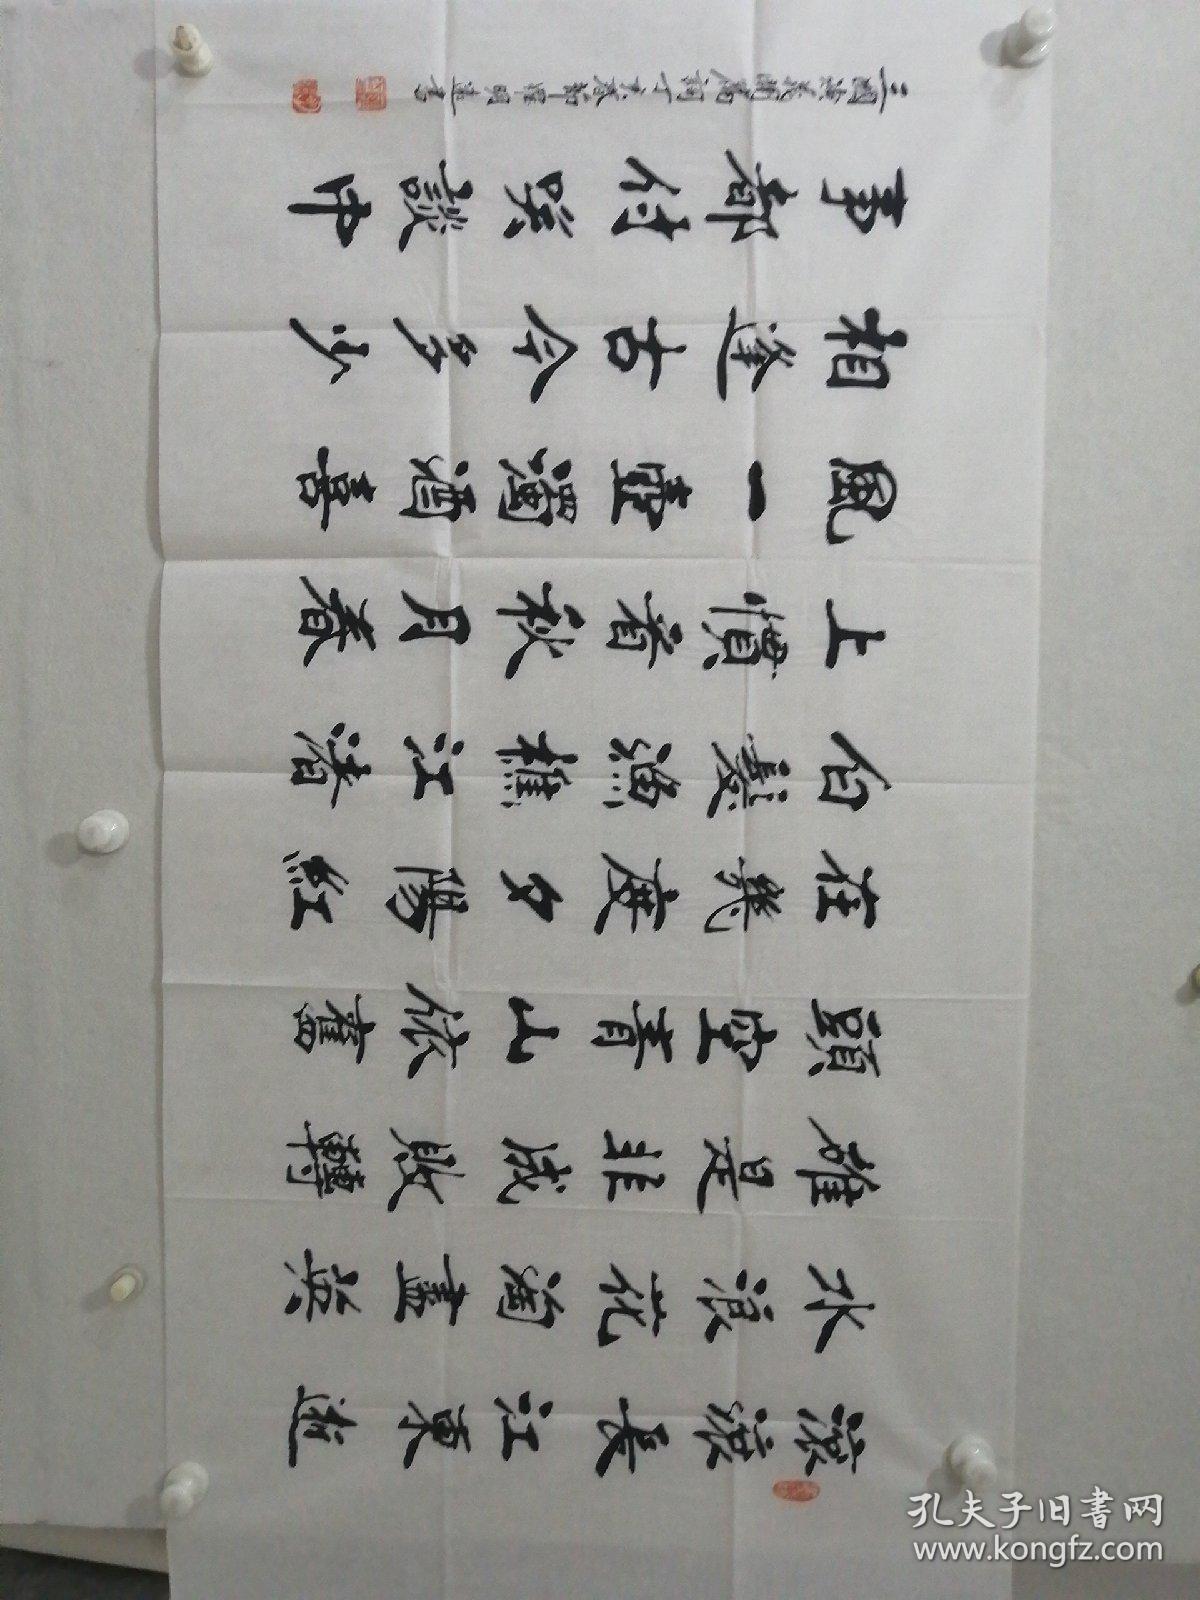 滾滾長江東逝
水浪花淘盡英
雄是非成敗轉
頭空青山依舊
在幾度夕陽紅
白髮漁樵江渚
上慣看秋月春
風一壺濁酒喜
相逢古今多少
事都付笑談中
三國演義開篇詞丁亥春節明書
孔夫子旧书网
www.kongfz.com